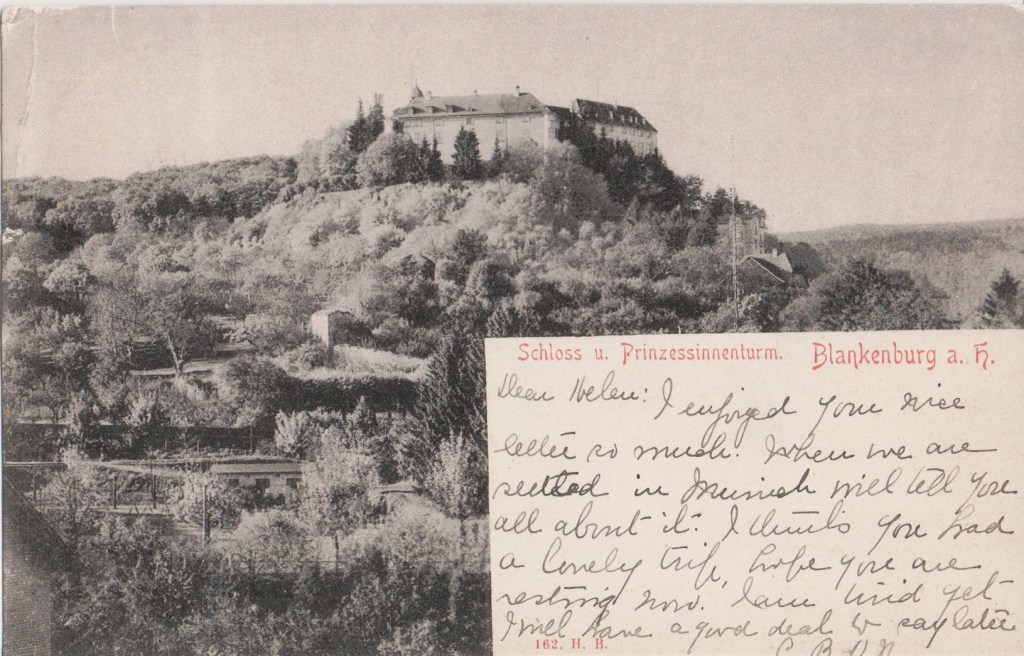 Schloss u. Prinzessinnenturm. Blankenburg a. H.
Dear Helen: I enjoyed your nice
letter so much. When we are
settled in Munich will tell you
all about it. I think you had
a lovely trip, hope you are
resting now. I am tired yet.
I will have a good deal to say later
162, H. B.